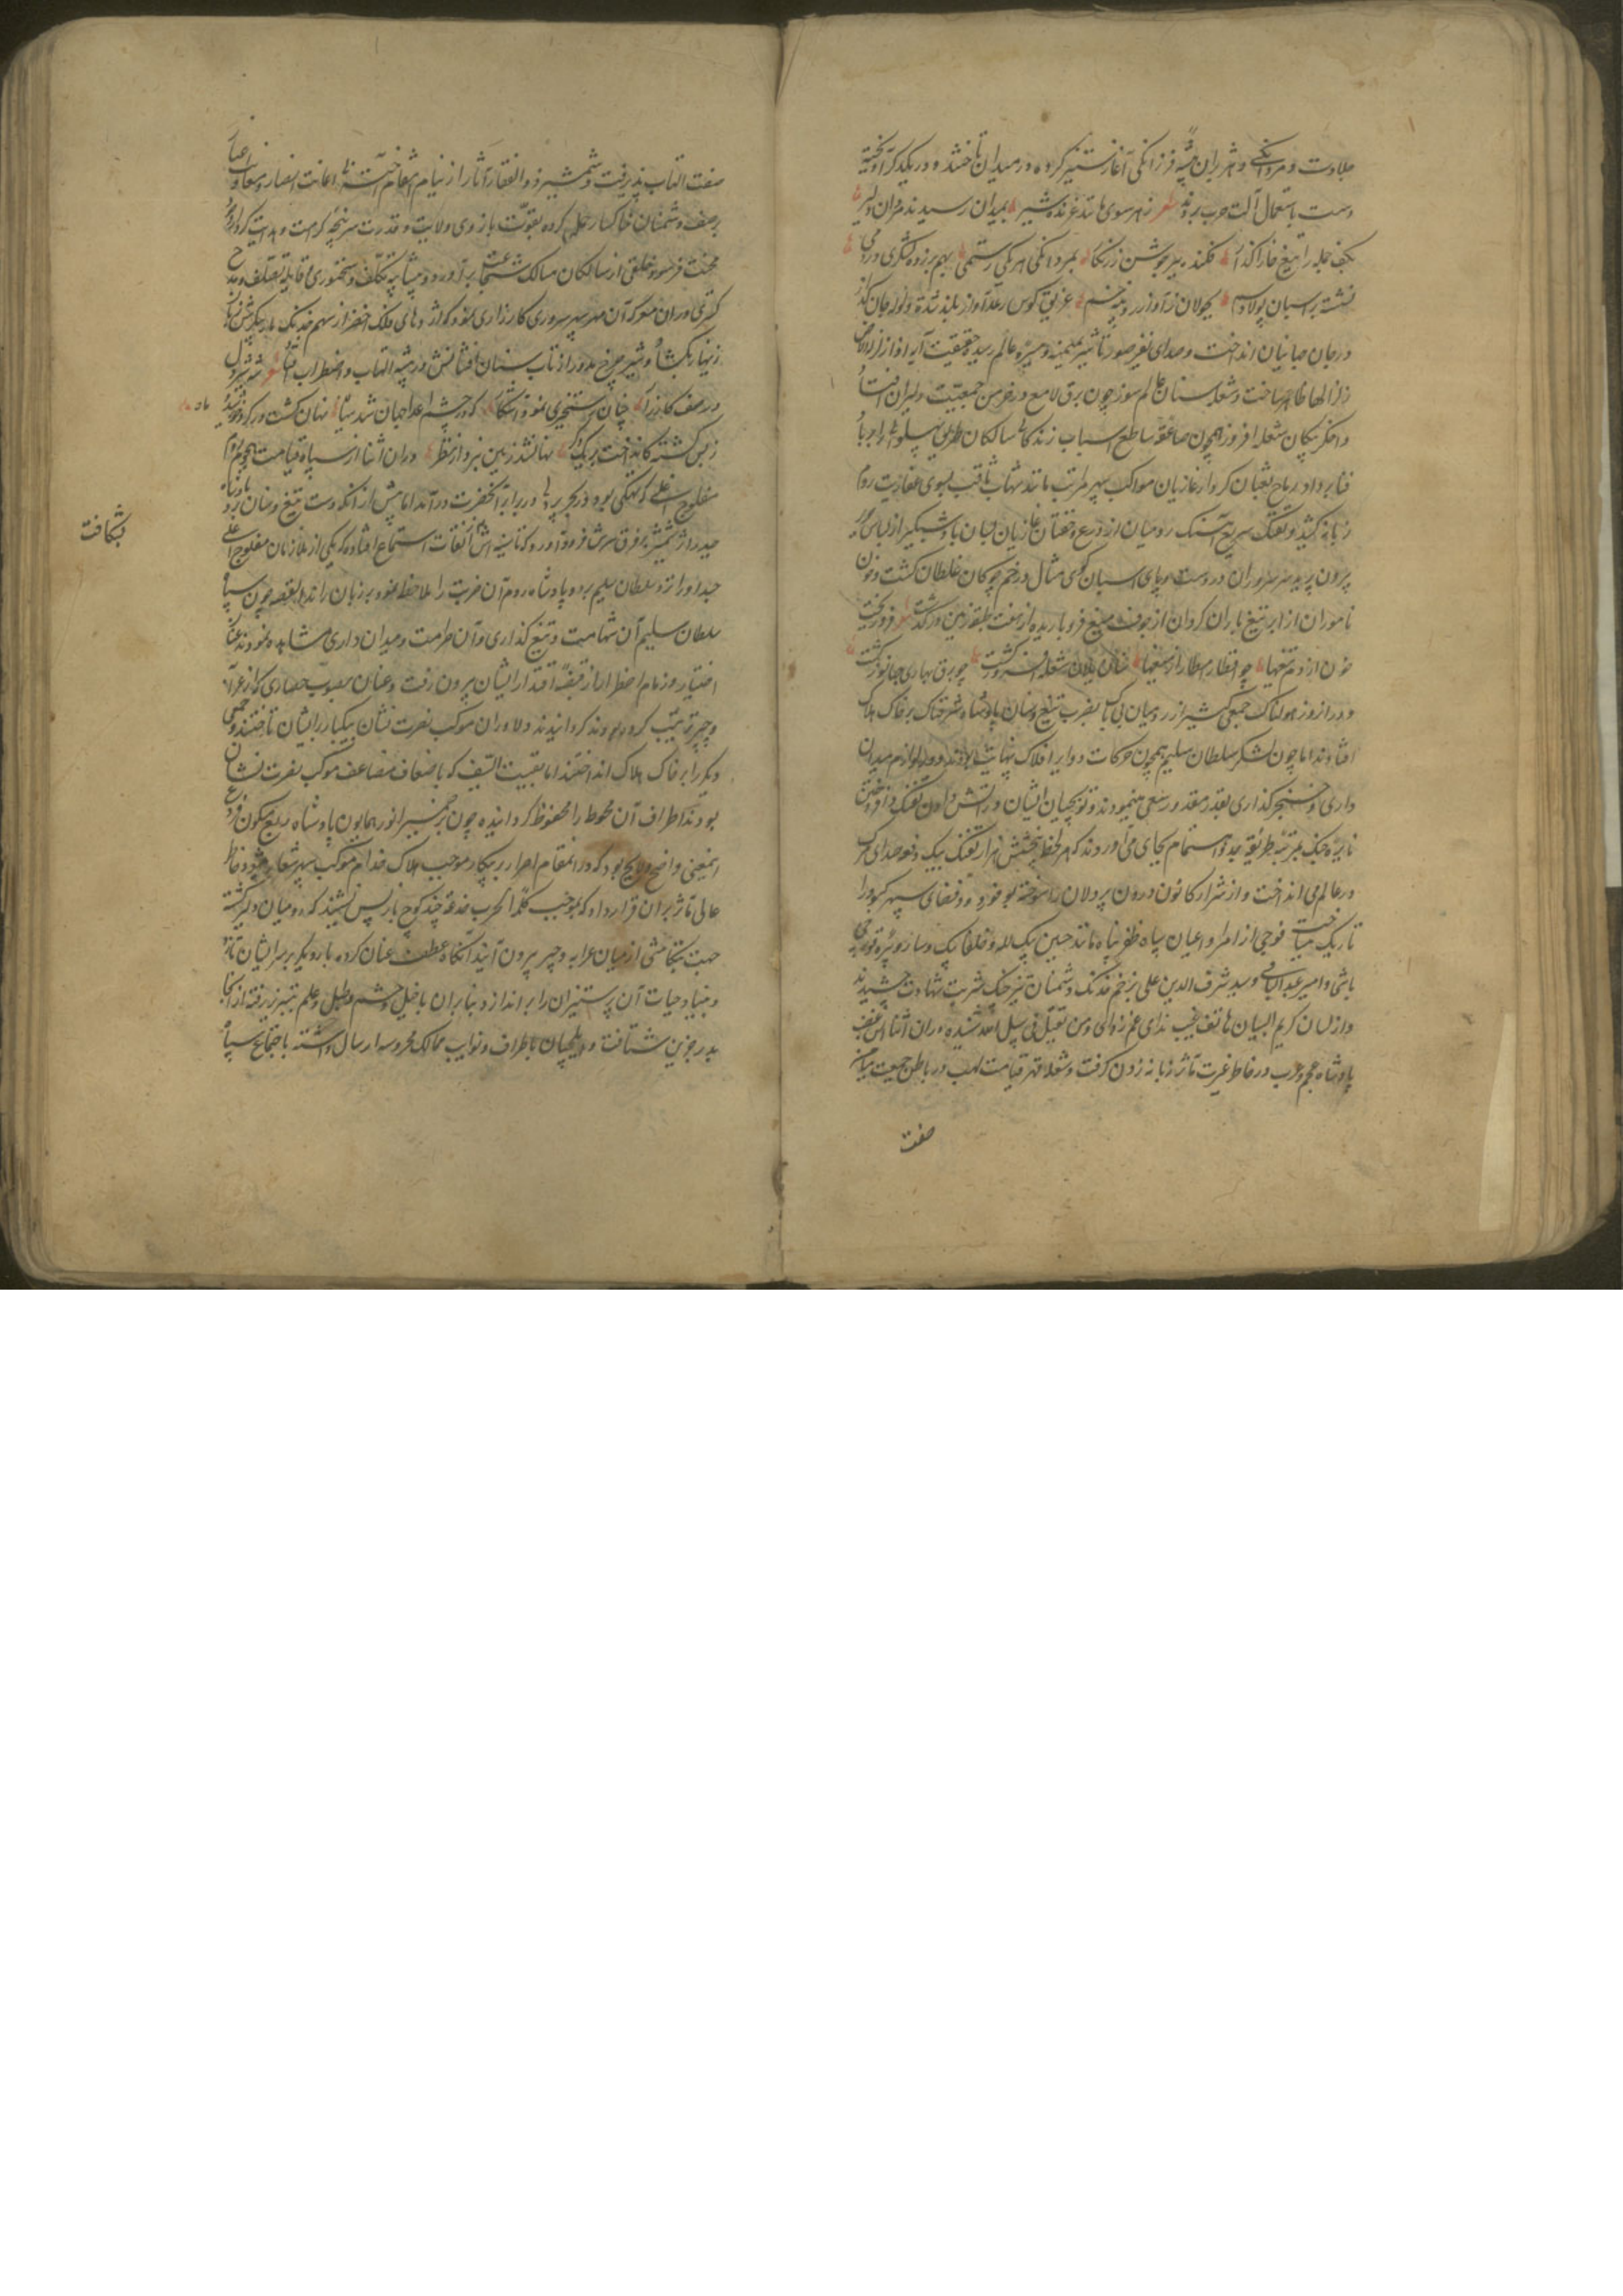 جلادت و مردانگی و هژبران بیشه فرزانگی آغاز ستیز کرده در میدان تاختند و در یکدیگر آویخته
دست باستعمال آلت حرب بردند شعر ز هر سوی مانند غرنده شیر بمیدان رسیدند مردان دلیر
بکف جمله را تیغ خارا گذار فکنده ببر جوشن زرنگار بمردانگی هر یکی رستمی بهم بر زده لشکری در دمی
نشسته بر اسبان پولاد سم بجولان ز آواز رویینه خم غریو کوس رعد آواز بلند شده ولوله در جان
در جان جهانیان انداخت و صدای نفیر صور تأثیر بمیمنه و میسره عالم رسیده حقیقت آیه اذا زلزلت الارض
زلزالها ظاهر ساخت و شعله سنان عالم سوز چون برق لامع در خرمن جمعیت دلیران افتاد
و اخگر پیکان شعله افروز همچون صاعقه ساطع اسباب زندگانی سالکان طریق پهلوانی را در باد
فنا بر داد رماح ثعبان کردار غازیان مواکب سپهر مراتب مانند شهاب ثاقب بسوی عفاریت روم
زبانه کشید و تفنگ سریع آهنگ رومیان از درع و خفتان غازیان بسان باد شبگیر از لباس
بیرون پرید سر سروران در دست و پای اسبان گوی مثال در خم چوگان غلطان گشت و خون
ناموران از ابر تیغ باران گردان از جوف میغ فرو باریده از هفت طبقه زمین در گذشت شعر فرو ریخت
خون از دم تیغها چو اقطار امطار از میغها سنان یلان شعله افروز گشت چو برق بهاری جهانسوز گشت
و در آن روز هولناک جمعی کثیر از رومیان بی باک بضرب تیغ و سنان پادشاه شرحناک بر خاک هلاک
افتادند اما چون لشکر سلطان سلیم همچون حرکات دوایر افلاک بنهایت بودند و لوازم میدان
داری و خنجر گذاری بقدر مقدور سعی مینمودند و توپچیان ایشان در آتش دادن تفنگ و افروختن
نایره جنگ بمرتبه طریقه جد و اهتمام بجای می آوردند که هر لحظه شش هزار تفنگ بیک دفعه صدای مرگ
در عالم می انداخت و از شرار کانون درون پردلان را سوخته بود فضای سپهر کبود را
تاریک میساخت فوجی از امرا و اعیان سپاه ظفر پناه مانند حسین بیک لله و خلفا بیک و ساروپیره قورچی
باشی و امیر عبدالباقی و سید شرف الدین علی بزخم خدنگ دشمنان تیز جنگ شربت شهادت چشیدند
و از لسان کریم البیان هاتف غیب ندای غم زدای و من یقتل فی سبیل الله شنیده در آن اثنا آتش غضب
پادشاه عجم و عرب در خاطر غیرت مآثر زبانه زدن گرفت و شعله قهر قیامت لهب در باطن حمیت میامن
صفت
صفت التهاب پذیرفت و شمشیر ذوالفقار آثار را از نیام انتقام آخته بی اعانت انصار و معاونت اعیان
بر صف دشمنان خاکسار حمله کرده بقوت بازوی ولایت و قدرت سرپنجه کرامت و هدایت گرد از
محنت فرسود خلقی از سالکان مسالک شجاعت برآورد و بی شایبه تکلف و سخنوری و قابلیه تصلف و مدح
گستری در آن معرکه آن مهر سپهر سروری کارزاری نمود که اژدهای فلک اخضر از سهم خدنگ مار پیکرش
زینهار گشاد و شیر چرخ مدور از تاب سنان آتش افشانش در بیشه التهاب و اضطراب افتاد شعر شه شیردل
در صف کارزار چنان رستخیزی نمود آشکار که در چشم اعدا جهان شد سیاه نهان گشت در گرد خورشید و ماه
ز بس کشته کانداخت بر یکدگر نهان شد زمین نیز و از نظر در آن اثنا از سپاه قیامت هجوم روم
مفلوج علی که نهنگی بود در بحر پر دلی در برابر آنحضرت درآمد اما پیش از آنکه دست بتیغ و سنان برد پادشاه
حیدر اثر شمشیر بر فرق سرش فرود آورد که تا سینه اش شکافت از ثقات استماع افتاده که یکی از ملازمان مفلوج علی
جسد او را نزد سلطان سلیم برده پادشاه روم آن ضربت را ملاحظه نموده بر زبان راند القصه چون سپاه
سلطان سلیم آن شهامت و تیغ گذاری و آن صرامت و میدان داری مشاهده نمودند عنان
اختیار و زمام اصطبار از قبضه اقتدار ایشان بیرون رفت و عنان بصوب حصاری که از عرابه
و چپر ترتیب کرده بودند گردانیدند دلاوران موکب نصرت نشان یکبار در ایشان تاختند و جمعی
دیگر را بر خاک هلاک انداختند اما بقیت السیف که باضعاف مضاعف موکب نصرت نشان
بودند اطراف آن محوطه را محفوظ گردانیده چون بر ضمیر انور همایون پادشاه ربع مسکون
اینمعنی واضح و لایح بود که در آنمقام اصرار بر پیکار موجب هلاک خدام موکب سپهر شعار میشود خاطر
عالی مآثر بر آن قرار داد که بموجب کلمه الحرب خدعة چند گام باز پس نشیند که رومیان دلیر گشته
جهت تکامشی از میان عرابه و چپر بیرون آیند آنگاه عطف عنان کرده بار دیگر بر سر ایشان تازد
و بنیاد حیات آن پرستیزان را براندازد بنابر آن با خیل و حشم و طبل و علم بتبریز رفته از آنجا
بدر جزین شتافت و ایلچیان باطراف و نوایب ممالک محروسه ارسال داشته باجتماع سپاه
بشکافت